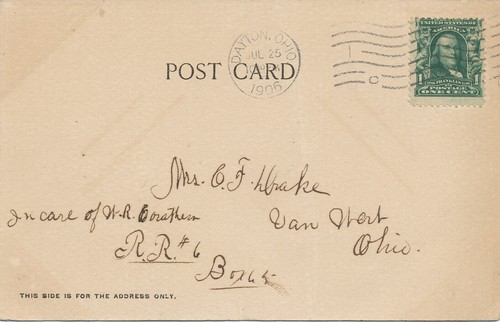 DAYTON, OHIO
JUL 25
1906
POST CARD
UNITED STATES OF AMERICA
FRANKLIN
POSTAGE
ONE CENT
Mrs. C. F. Drake
In care of W. R.
Van Wert
Ohio.
R. R. # 6
Box
THIS SIDE IS FOR THE ADDRESS ONLY.